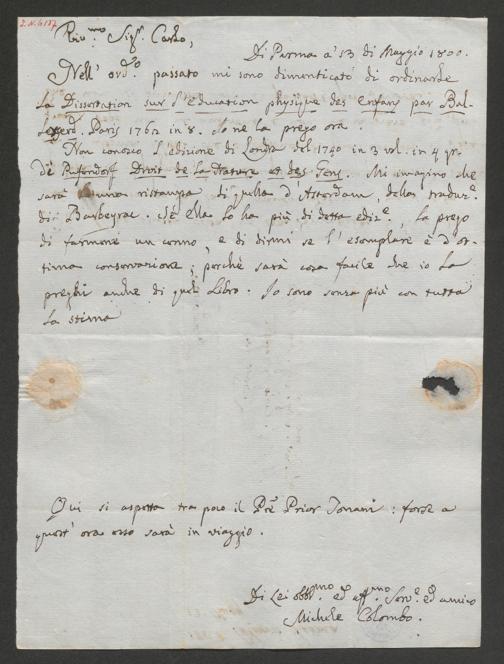 2.N.6187
Riv.mo Sig.r Carlo,
Di Parma a' 13 di Maggio 1800.
Nell' ord.o passato mi sono dimenticato di ordinarle
la Dissertation sur l'education physique des enfans par Bal-
lexerd. Paris 1762 in 8. Io ne la prego ora.
Non conosco l'edizione di Londra del 1740 in 3 vol. in 4 gr.
de Pufendorf Droit de La Nature et des Gens. Mi imagino che
sarà una ristampa di quella d'Amsterdam, della traduz.e
di Barbeyrac. Se ella lo ha più di detta ediz.e, la prego
di farmene un cenno, e di dirmi se l'esemplare è d'ot-
tima conservazione; perchè sarà cosa facile che io La
preghi anche di quel Libro. Io sono senza più con tutta
la stima
Qui si aspetta tra poco il P̃re Prior : forse a
quest' ora esso sarà in viaggio.
Di Lei obbl.mo ed aff.mo Serv.e ed amico
Michele Colombo.